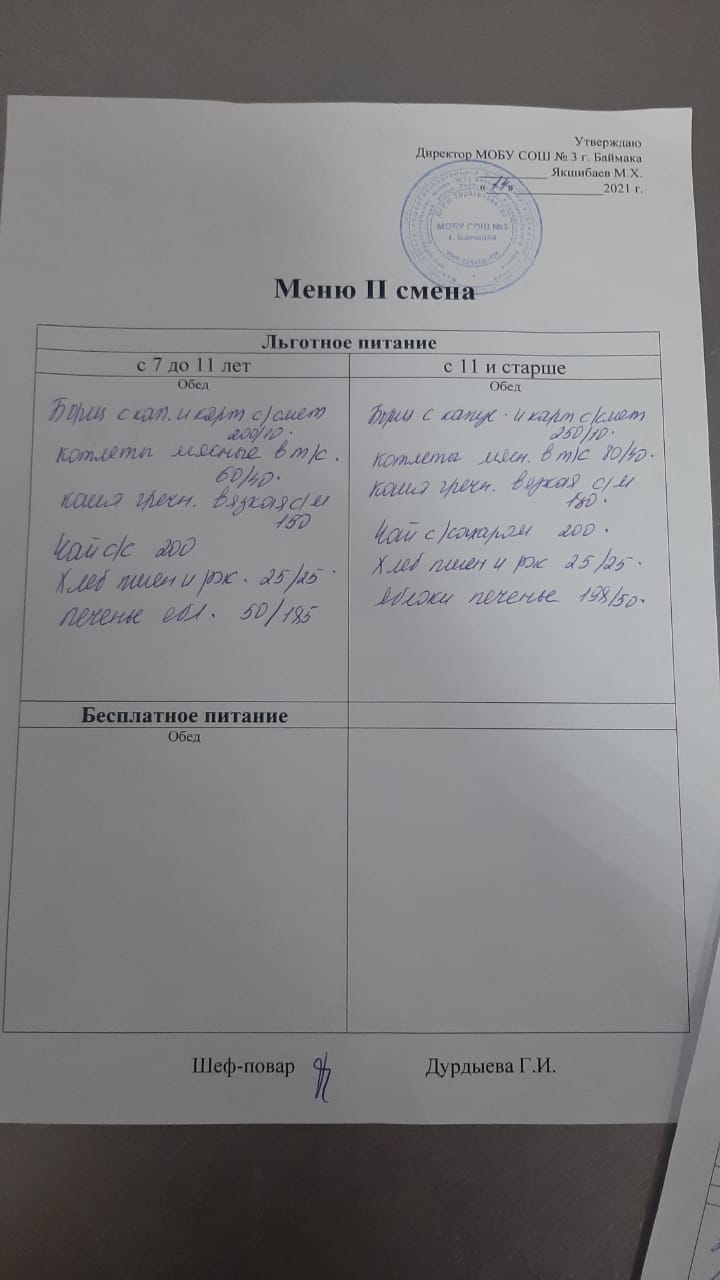 Утверждаю
Директор МОБУ СОШ № 3 г. Баймака
____________ Якшибаев М.Х.
«11» ______________2021 г.
МОБУ СОШ №3
г. Баймака
Меню II смена
Льготное питание
с 7 до 11 лет
Обед
Борщ с кап. и карт с/смет
200/10.
котлеты мясные в т/с.
60/40.
каша гречн. вязкая с/м
150
Чай с/с 200
Хлеб пшен и рж. 25/25.
печенье ябл. 50/185
с 11 и старше
Обед
Борщ с капус. и карт с/смет
250/10.
котлеты мясн. в т/с 80/40.
каша гречн. вязкая с/м
180.
Чай с/сахаром 200.
Хлеб пшен и рж 25/25.
яблоки печенье 198/50.
Бесплатное питание
Обед
Шеф-повар Дурдыева Г.И.